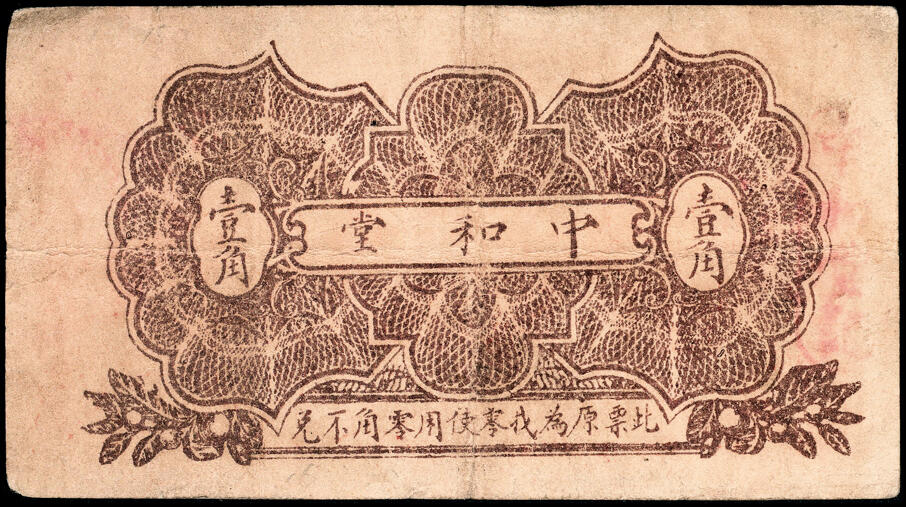 壹角
中和堂
壹角
此票原為找零使用零角不兌